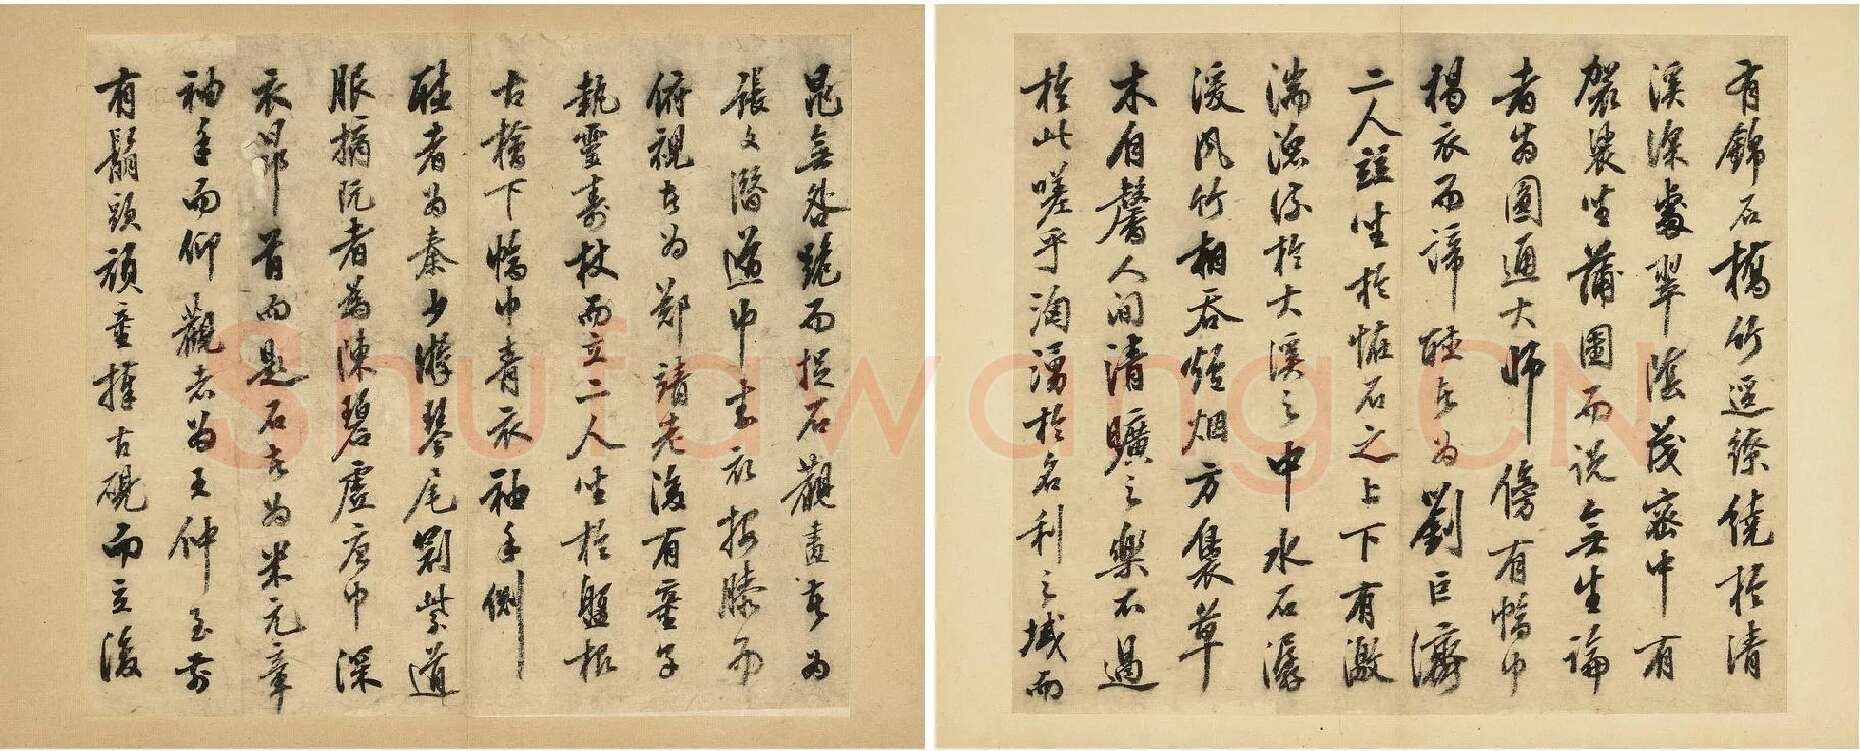 晁無咎跪而捉石觀畫者为
張文潛道巾素衣按膝而
俯視者为鄭靖老後有童子
執靈壽杖而立二人坐於盤根
古檜下幅巾青衣袖手側
聽者为秦少游琴尾冠紫道
服摘阮者為陳碧虛唐巾深
衣昂首而題石者为米元章
袖手而仰觀者为王仲至前
有鬅頭頑童捧古硯而立後
有錦石橋竹逕繚繞於清
溪深處翠陰茂密中有
袈裟坐蒲團而説無生論
者为圓通大師傍有幅巾
褐衣而諦聽者为劉巨濟
二人並坐於怪石之上下有激
湍潀流於大溪之中水石潺
湲風竹相吞爐烟方裊草
木自馨人間清曠之樂不過
於此嗟乎洶湧於名利之域而
Shufawang.CN